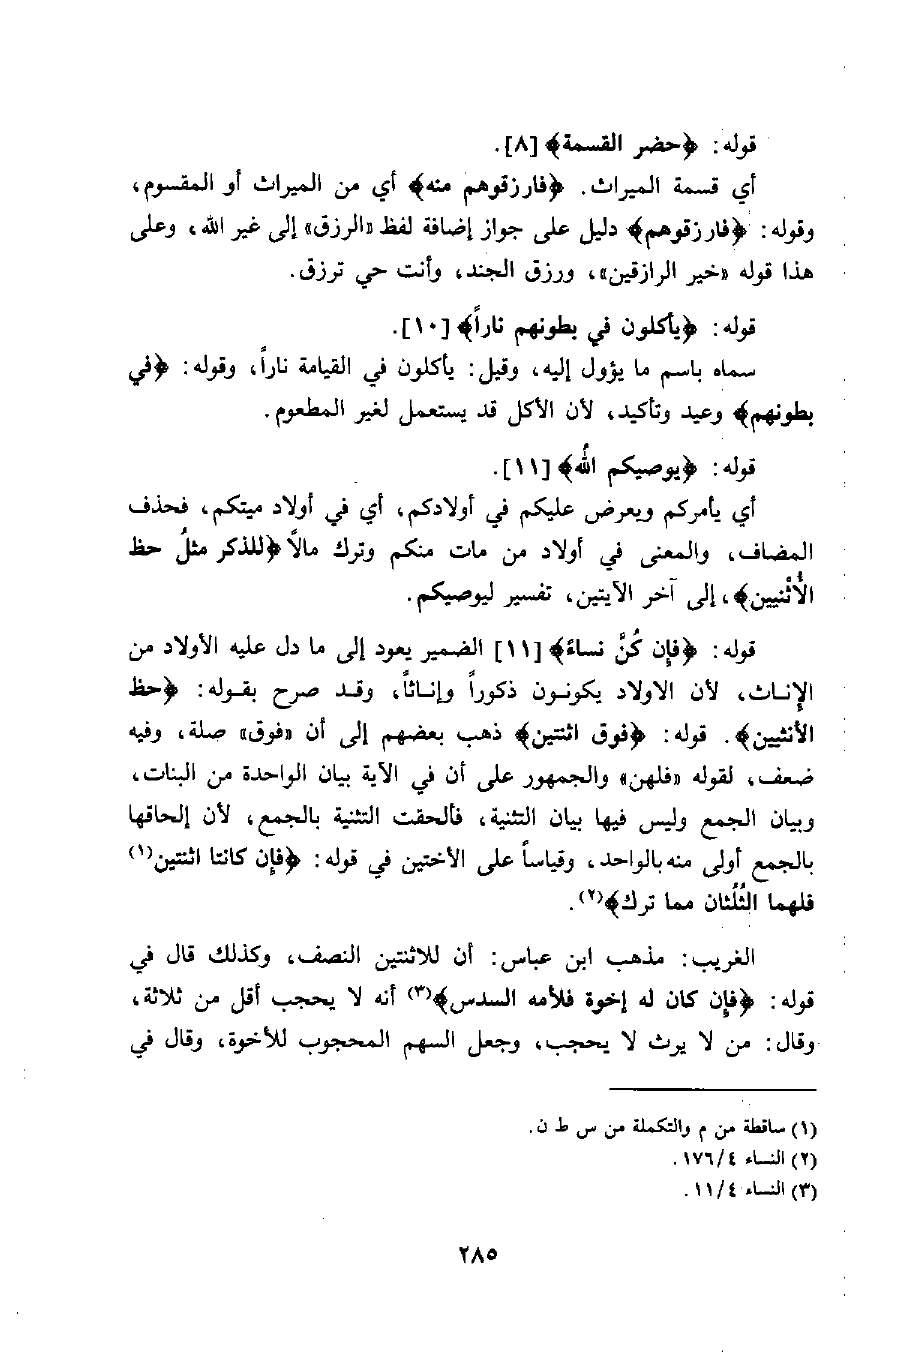 قوله: ﴿حضر القسمة﴾ [٨].
أي قسمة الميراث. ﴿فارزقوهم منه﴾ أي من الميراث أو المقسوم،
وقوله: ﴿فارزقوهم﴾ دليل على جواز إضافة لفظ «الرزق» إلى غير الله، وعلى
هذا قوله «خير الرازقين»، ورزق الجند، وأنت حي ترزق.
قوله: ﴿يأكلون في بطونهم ناراً﴾ [١٠].
سماه باسم ما يؤول إليه، وقيل: يأكلون في القيامة ناراً، وقوله: ﴿في
بطونهم﴾ وعيد وتأكيد، لأن الأكل قد يستعمل لغير المطعوم.
قوله: ﴿يوصيكم اللهُ﴾ [١١].
أي يأمركم ويعرض عليكم في أولادكم، أي في أولاد ميتكم، فحذف
المضاف، والمعنى في أولاد من مات منكم وترك مالاً ﴿للذكر مثلُ حظ
الأُنْثيين﴾، إلى آخر الآيتين، تفسير ليوصيكم.
قوله: ﴿فإن كُنَّ نساءً﴾ [١١] الضمير يعود إلى ما دل عليه الأولاد من
الإناث، لأن الاولاد يكونون ذكوراً وإناثاً، وقد صرح بقوله: ﴿حظ
الأنثيين﴾. قوله: ﴿فوق اثنتين﴾ ذهب بعضهم إلى أن «فوق» صلة، وفيه
ضعف، لقوله «فلهن» والجمهور على أن في الآية بيان الواحدة من البنات،
وبيان الجمع وليس فيها بيان التثنية، فألحقت التثنية بالجمع، لأن إلحاقها
بالجمع أولى منه بالواحد، وقياساً على الأختين في قوله: ﴿فإن كانتا اثنتين(١)
فلهما الثُلُثان مما ترك﴾(٢).
الغريب: مذهب ابن عباس: أن للاثنتين النصف، وكذلك قال في
قوله: ﴿فإن كان له إخوة فلأمه السدس﴾(٣) أنه لا يحجب أقل من ثلاثة،
وقال: من لا يرث لا يحجب، وجعل السهم المحجوب للأخوة، وقال في
(١) ساقطة من م والتكملة من س ط ن.
(٢) النساء ٤/١٧٦.
(٣) النساء ٤/١١.
٢٨٥